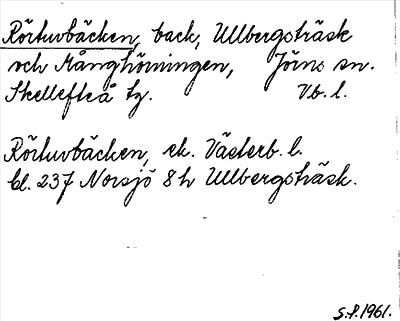 Rörtuvbäcken, back, Ullbergsträsk
och Månghörningen, Jörns sn.
Skellefteå tg. Vb. l.
Rörtuvbäcken, ek. Västerb. l.
bl. 237 Norsjö 8h Ullbergsträsk.
S.P. 1961.